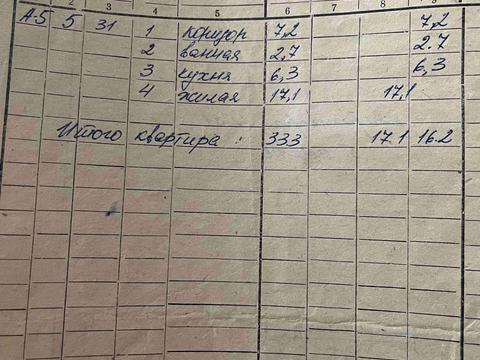 2 3 4 5 6 7 8
А-5 5 31 1 коридор 7,2 7,2
2 ванная 2,7 2.7
3 кухня 6,3 6,3
4 жилая 17,1 17,1
Итого квартира: 333 17.1 16.2